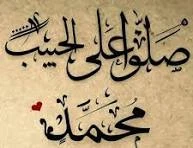 صَلُّوا عَلَى الحَبِيب
مُحَمَّدٍ